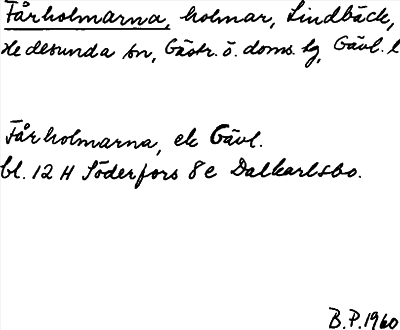 Fårholmarna, holmar, Lindbäck,
Hedesunda sn, Gästr. ö. doms. hg, Gävl. l
Fårholmarna, ek Gävl.
bl. 12 H Söderfors 8 e Dalkarlsbo.
B.P. 1960